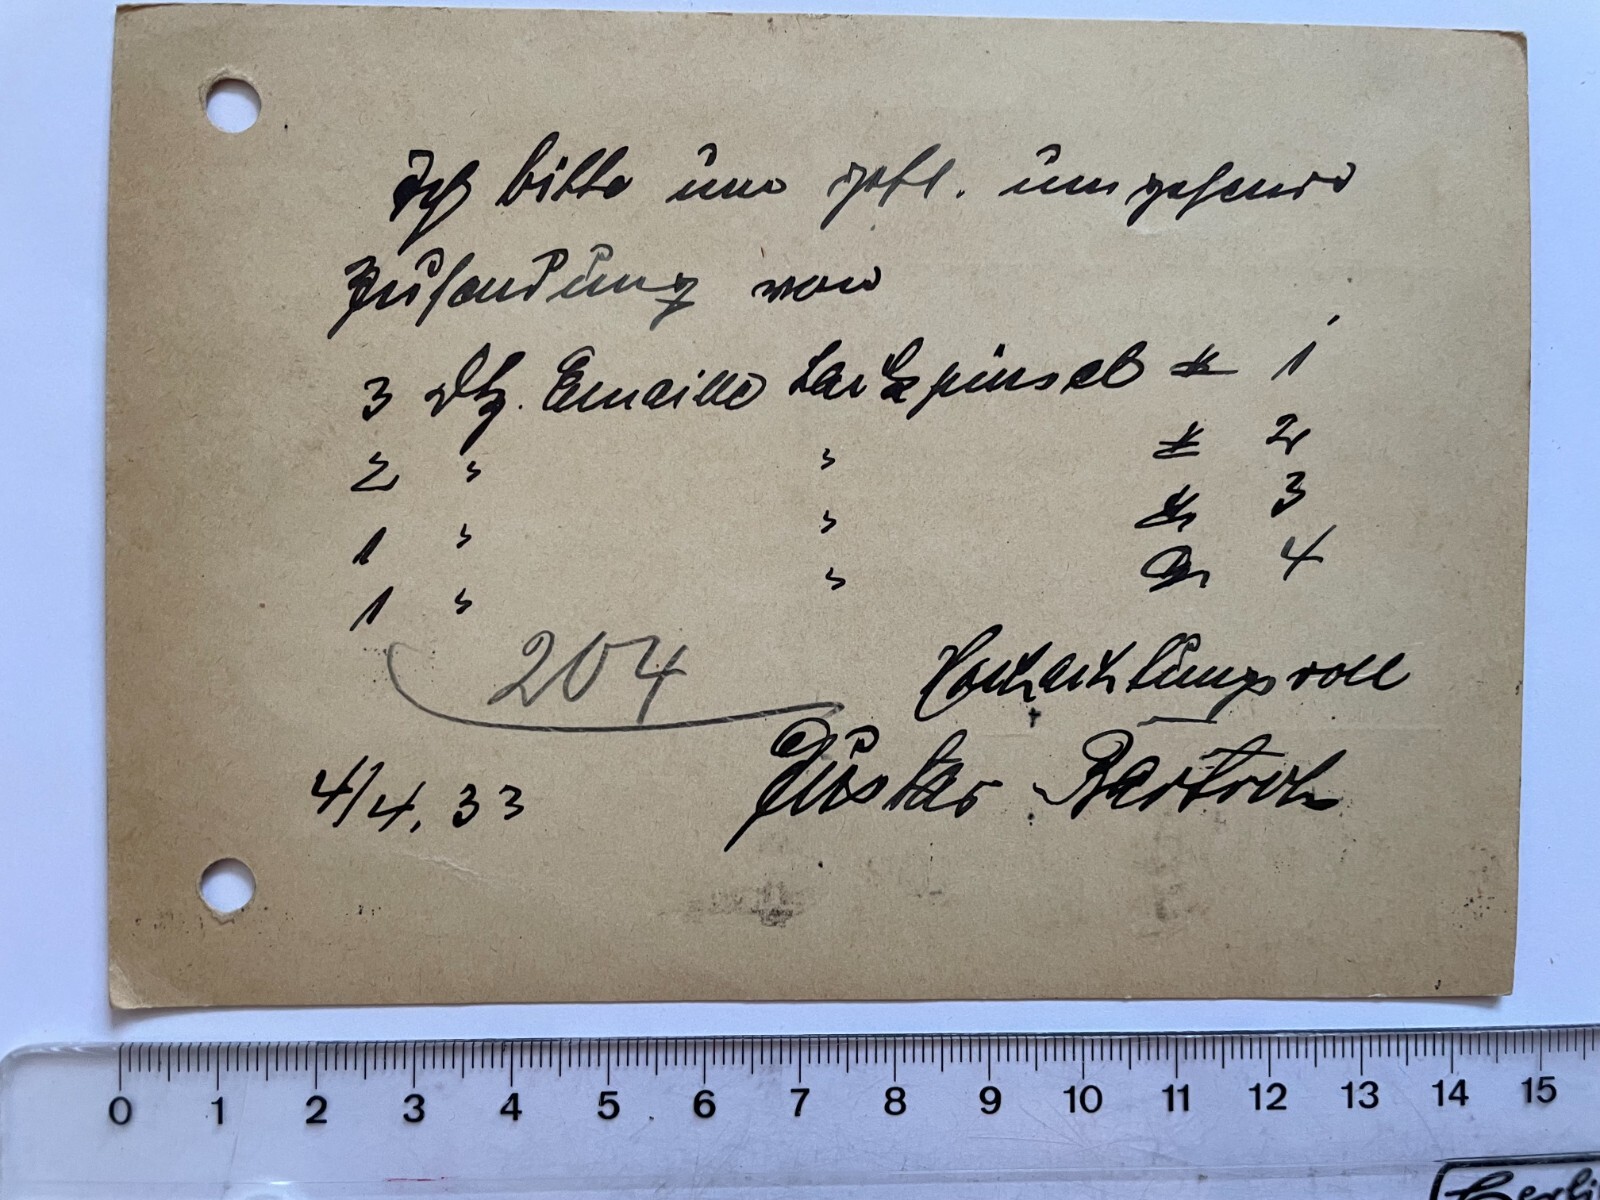 Ich bitte um gefl. umgehend
Zusendung von
3 Dtz. Emaille Lackpinsel # 1
2 " " # 2
1 " " # 3
1 " " 4
204
Hochachtungsvoll
4/4. 33 Gustav
0 1 2 3 4 5 6 7 8 9 10 11 12 13 14 15